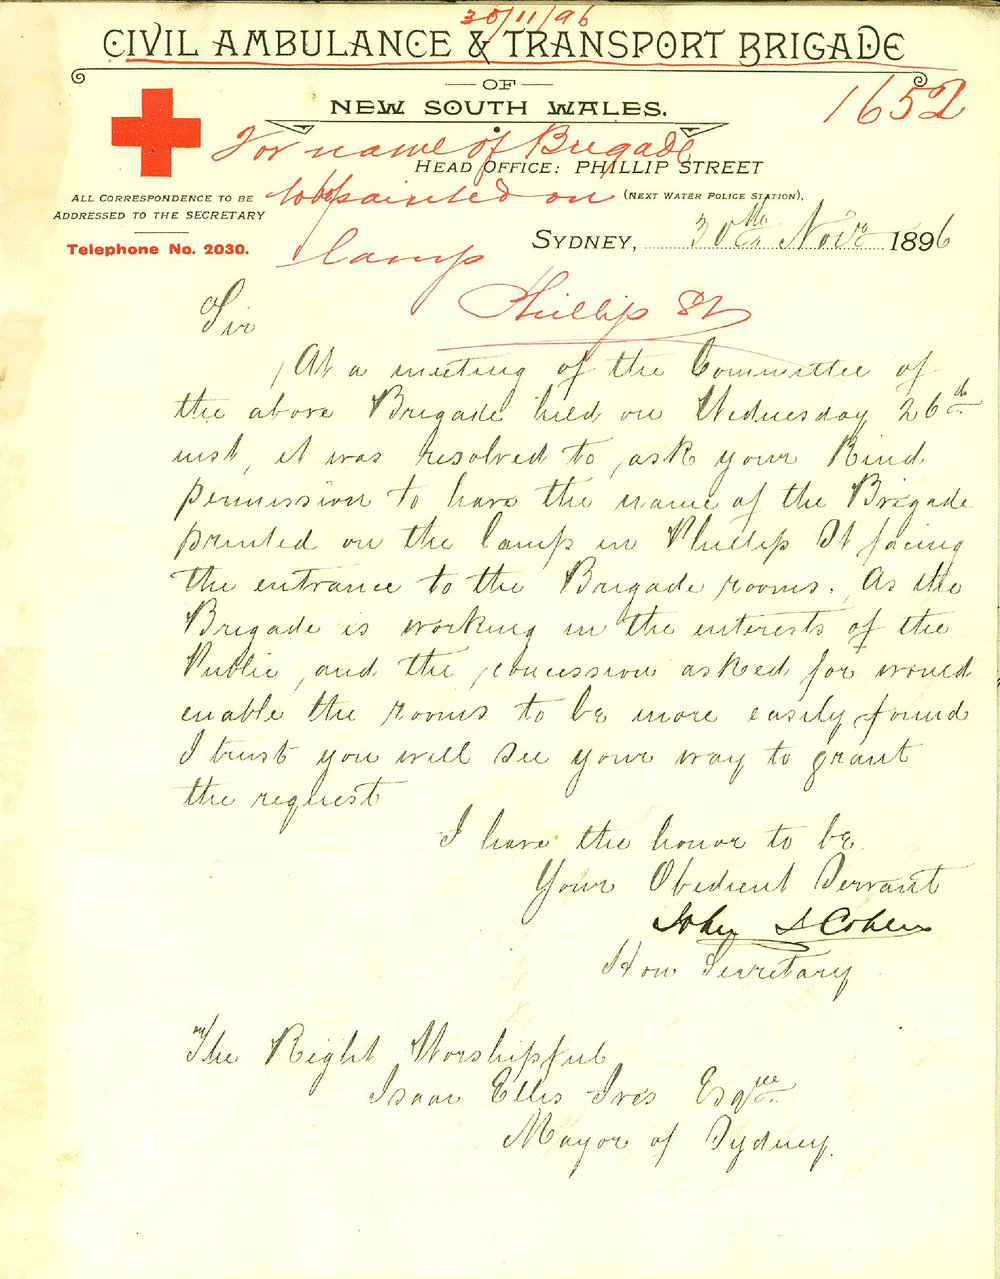 30/11/96
CIVIL AMBULANCE & TRANSPORT BRIGADE
OF
NEW SOUTH WALES.
1652
For name of Brigade
HEAD OFFICE: PHILLIP STREET
(NEXT WATER POLICE STATION),
to be painted on
lamp
Phillip St
ALL CORRESPONDENCE TO BE
ADDRESSED TO THE SECRETARY
Telephone No. 2030.
SYDNEY, 30th Novr 1896
Sir
At a meeting of the Committee of
the above Brigade held on Wednesday 26th
inst, it was resolved to ask your Kind
permission to have the name of the Brigade
printed on the lamp in Phillip St facing
the entrance to the Brigade rooms. As the
Brigade is working in the interests of the
Public, and the concession asked for would
enable the rooms to be more easily found
I trust you will see your way to grant
the request
I have the honor to be
Your Obedient Servant
John S Cohen
Hon Secretary
The Right Worshipful
Isaac Ellis Ives Esqre
Mayor of Sydney.